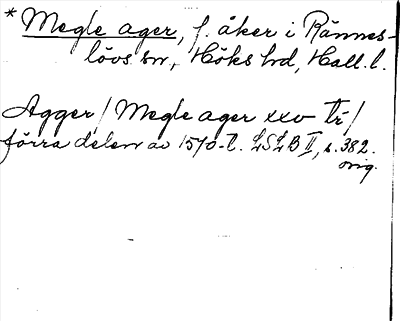 * Megle ager, f. åker i Rännes-
lövs sn, Höks hd, Hall. l.
Agger / Megle ager xxv tr /
förra delen av 1570-t. LSLB II, s. 382.
orig.